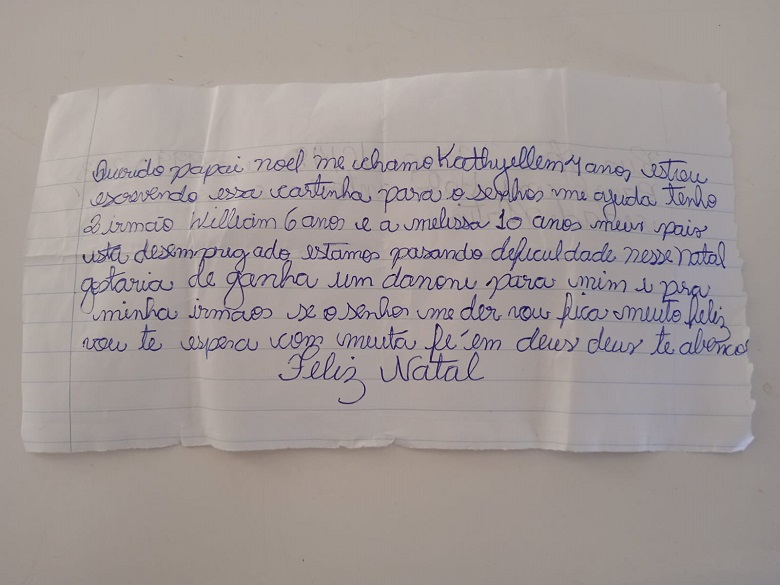 Querido papai noel me chamo Kathyellem 4 anos estou
escrevendo essa cartinha para o senhor me ajuda tenho
2 irmão William 6 anos e a melissa 10 anos meus pais
está desempregado estamos pasando deficuldade nesse natal
gostaria de ganha um danoni para mim e pra
minha irmãos se o senhor me der vou fica muito feliz
vou te espera com muita fé em deus deus te abenço
Feliz Natal